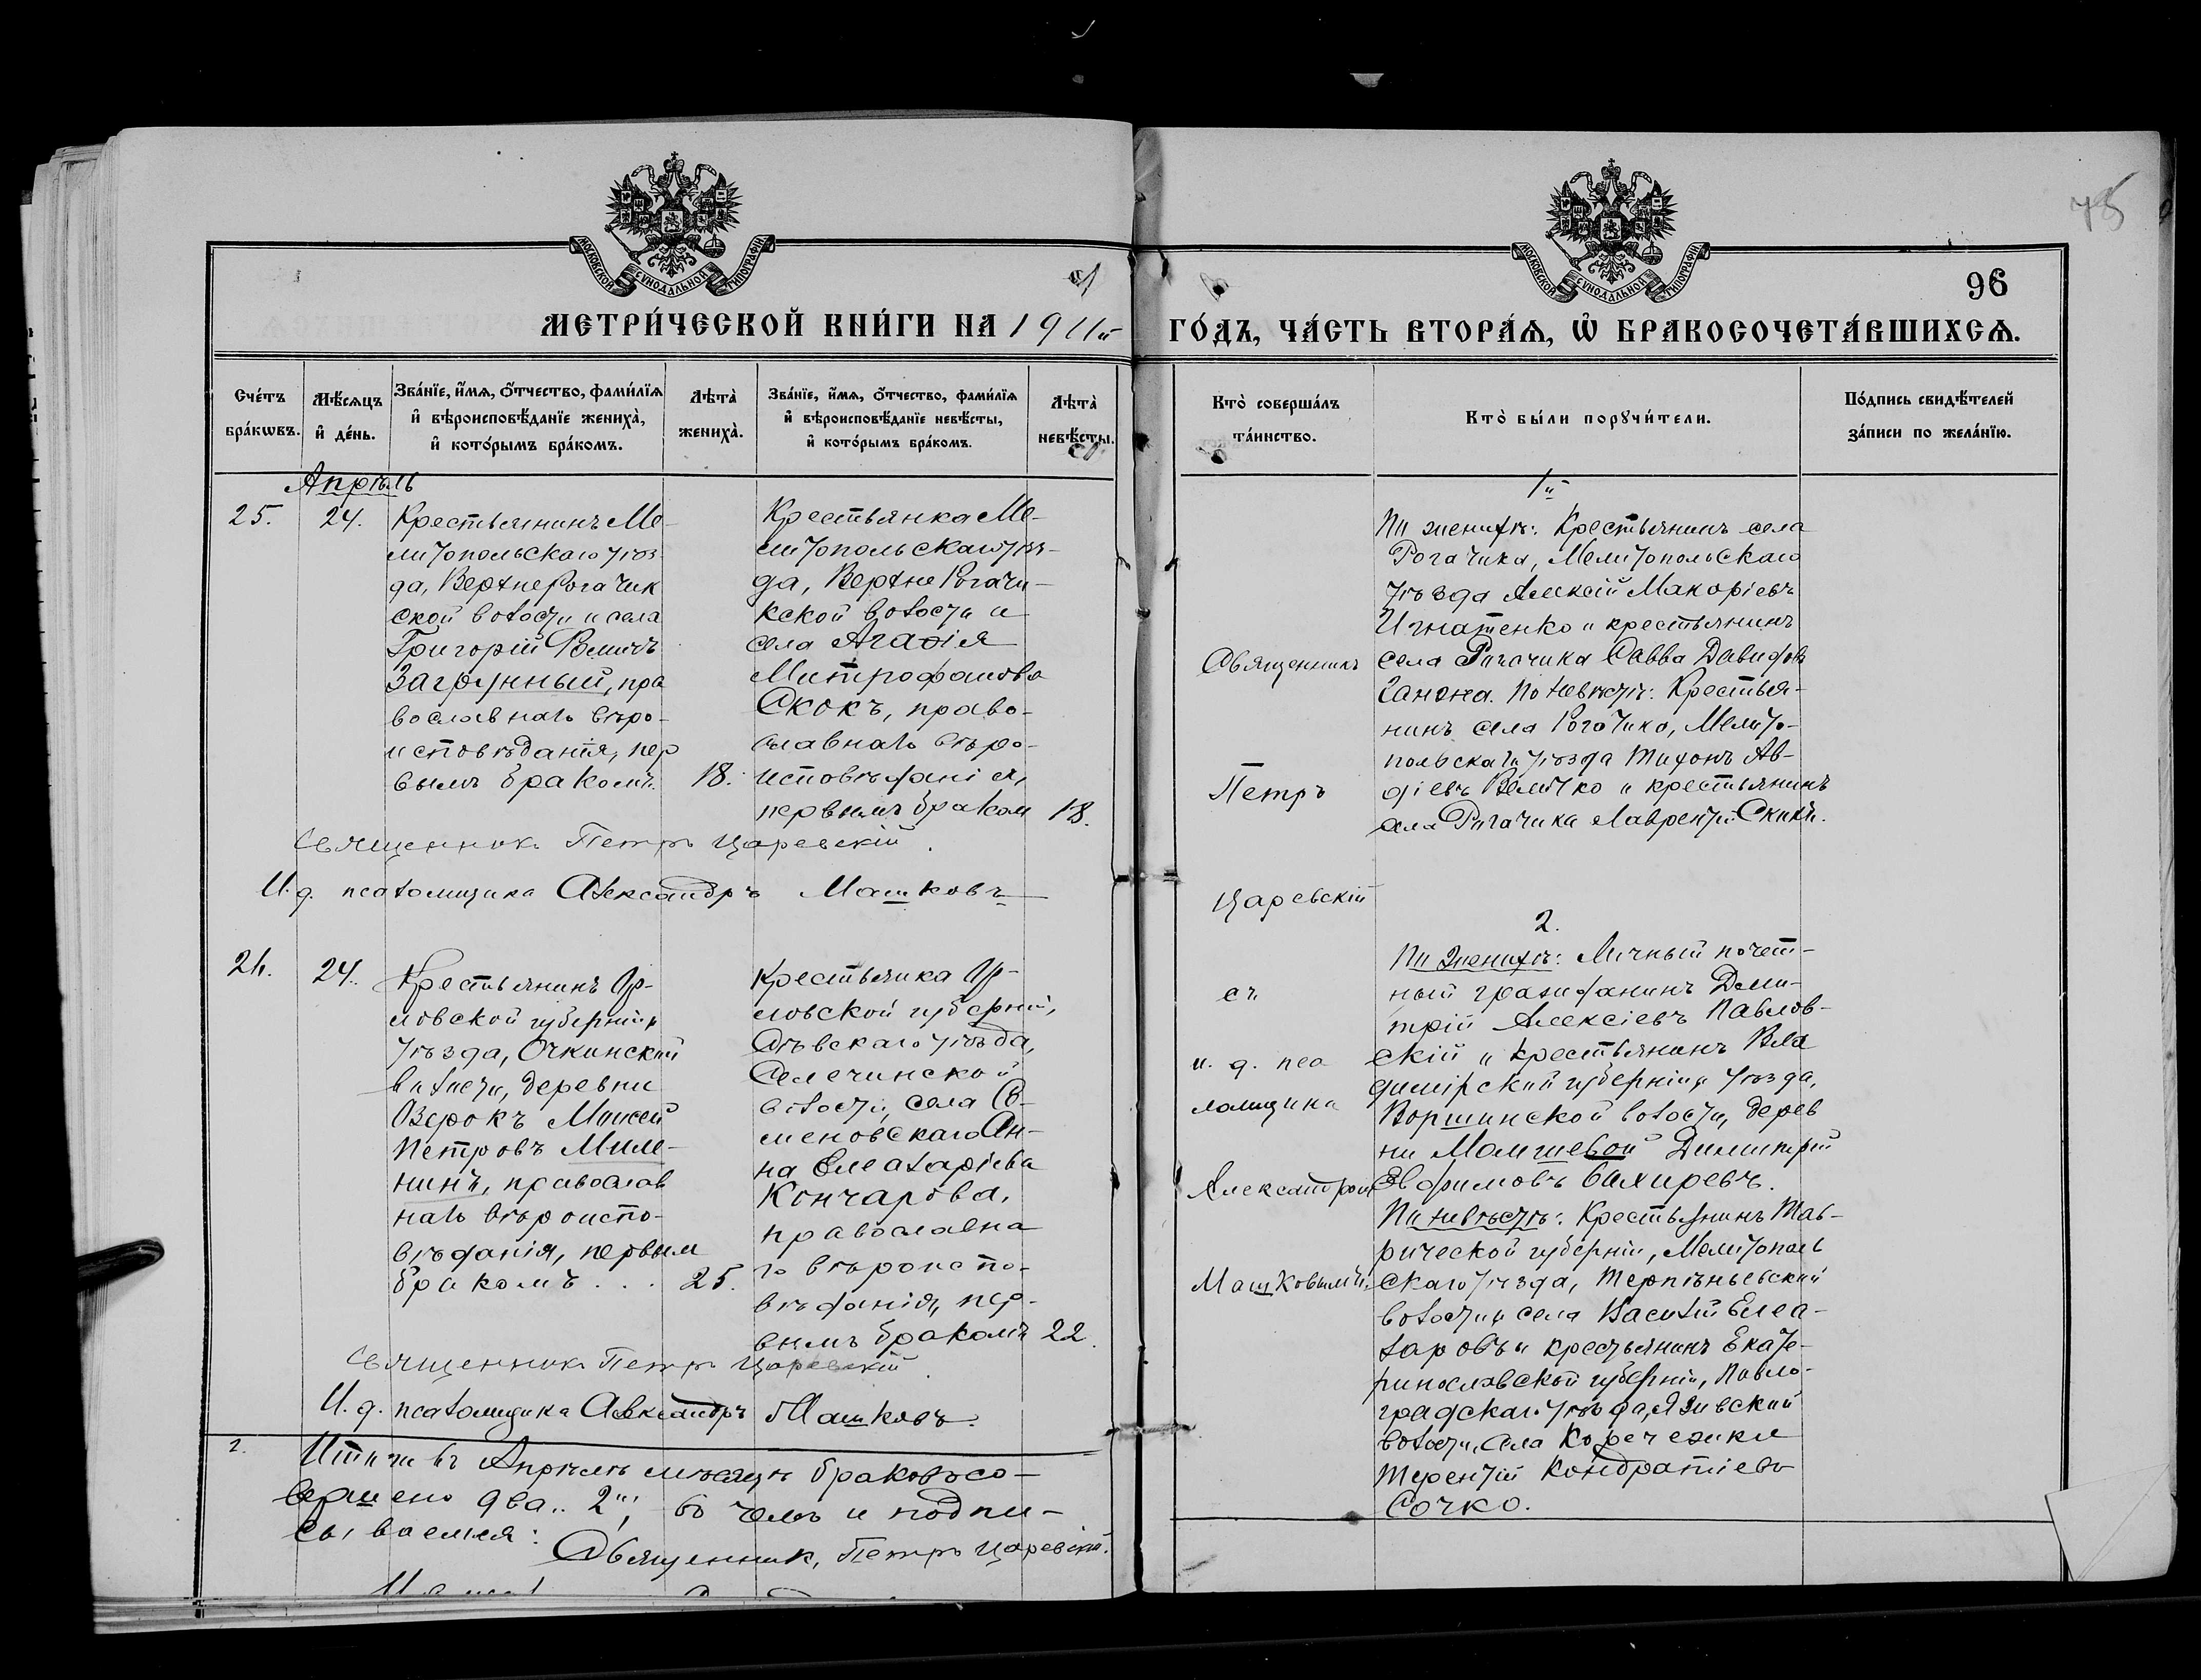 МОСКОВСКОЙ СѴНОДАЛЬНОЙ ТИПОГРАФІИ
МЕТРИ́ЧЕСКОЙ КНИ́ГИ НА 1911й
Сче́тъ бра́кѡвъ.
Мѣ́сяцъ и҆ де́нь.
Зва́нїе, и҆́мѧ, ѻ҆́тчество, фами́лїѧ
и҆ вѣроисповѣ́данїе жениха̀,
и҆ кото́рымъ бра́комъ.
Лѣ́та̀ жениха̀.
Зва́нїе, и҆́мѧ, ѻ҆́тчество, фами́лїѧ
и҆ вѣроисповѣ́данїе невѣ́сты,
и҆ кото́рымъ бра́комъ.
Лѣ́та̀ невѣ́сты.
Апрѣль
25.
24.
Крестьянинъ Ме-
литопольскаго уѣз
да, ВерхнеРогачик
ской волости и села
Григорій
Загрунный, пра
вославнаго вѣро-
исповѣданія, пер
вымъ бракомъ.
18.
Крестьянка Ме-
литопольскаго уѣз-
да, ВерхнеРогачи-
кской волости и
села Агафія
Митрофанова
Скокъ, право-
славнаго вѣро-
исповѣданія,
первымъ браком
18.
Священникъ Петръ Царевскій.
И. д. псаломщика Александръ Машковъ
26.
24.
Крестьянинъ Ор-
ловской губерніи и
уѣзда, Очкинской
волости, деревни
Озерокъ Моисей
Петровъ Миле-
нинъ, православ
наго вѣроиспо-
вѣданія, первым
бракомъ . . .
25.
Крестьянка Ор-
ловской губерніи,
Сѣвскаго уѣзда,
Селечинской
волости, села Се-
меновскаго Ан-
на Елеазаріева
Кончарова,
православна
го вѣроиспо-
вѣданія, пер-
вымъ бракомъ
22.
Священникъ Петръ Царевскій
И. д. псаломщика Александръ Машковъ.
2.
Итого въ Апрѣлѣ мѣсяцѣ браковъ со-
вершено два „2", въ чемъ и подпи-
сываемся:
Священник, Петръ Царевскій.
75
МОСКОВСКОЙ СѴНОДАЛЬНОЙ ТИПОГРАФІИ
96
ГО́ДЪ, ЧА́СТЬ ВТОРА́Ѧ, Ѡ҆ БРАКОСОЧЕТА́ВШИХСѦ.
Кто̀ соверша́лъ
та́инство.
Кто̀ бы́ли порꙋчи́тели.
По́дпись свидѣ́телей
за́писи по жела́нїю.
Священникъ
Петръ
Царевскій
съ
и. д. пса
ломщика
Александром
Машковымъ.
1й
По женихѣ: Крестьянинъ села
Рогачика, Мелитопольскаго
уѣзда Алексій Макоріевъ
Игнатенко и крестьянинъ
села Рогачика Савва Давидовъ
Ганжа. По невѣстѣ: Крестья-
нинъ села Рогачика, Мелито-
польскаго уѣзда Тихонъ Ав-
діевъ Величко и крестьянинъ
села Рогачика Лаврентій Скокъ.
2.
По женихѣ: Личный почет-
ный гражданинъ Дими-
трій Алексіевъ Павлов-
скій и крестьянинъ Вла
димірской губерніи и уѣзда,
Воршинской волости, дерев
ни Димитрій
Евфимовъ
По невѣстѣ: Крестьянинъ Тав-
рической губерніи, Мелитополь
скаго уѣзда, Терпѣньевской
волости и села Василій Елеа-
заровъ и крестьянинъ Екате-
ринославской губерніи, Павло-
градскаго уѣзда,
волости, села
Терентій Кондратіевъ
Сочко.